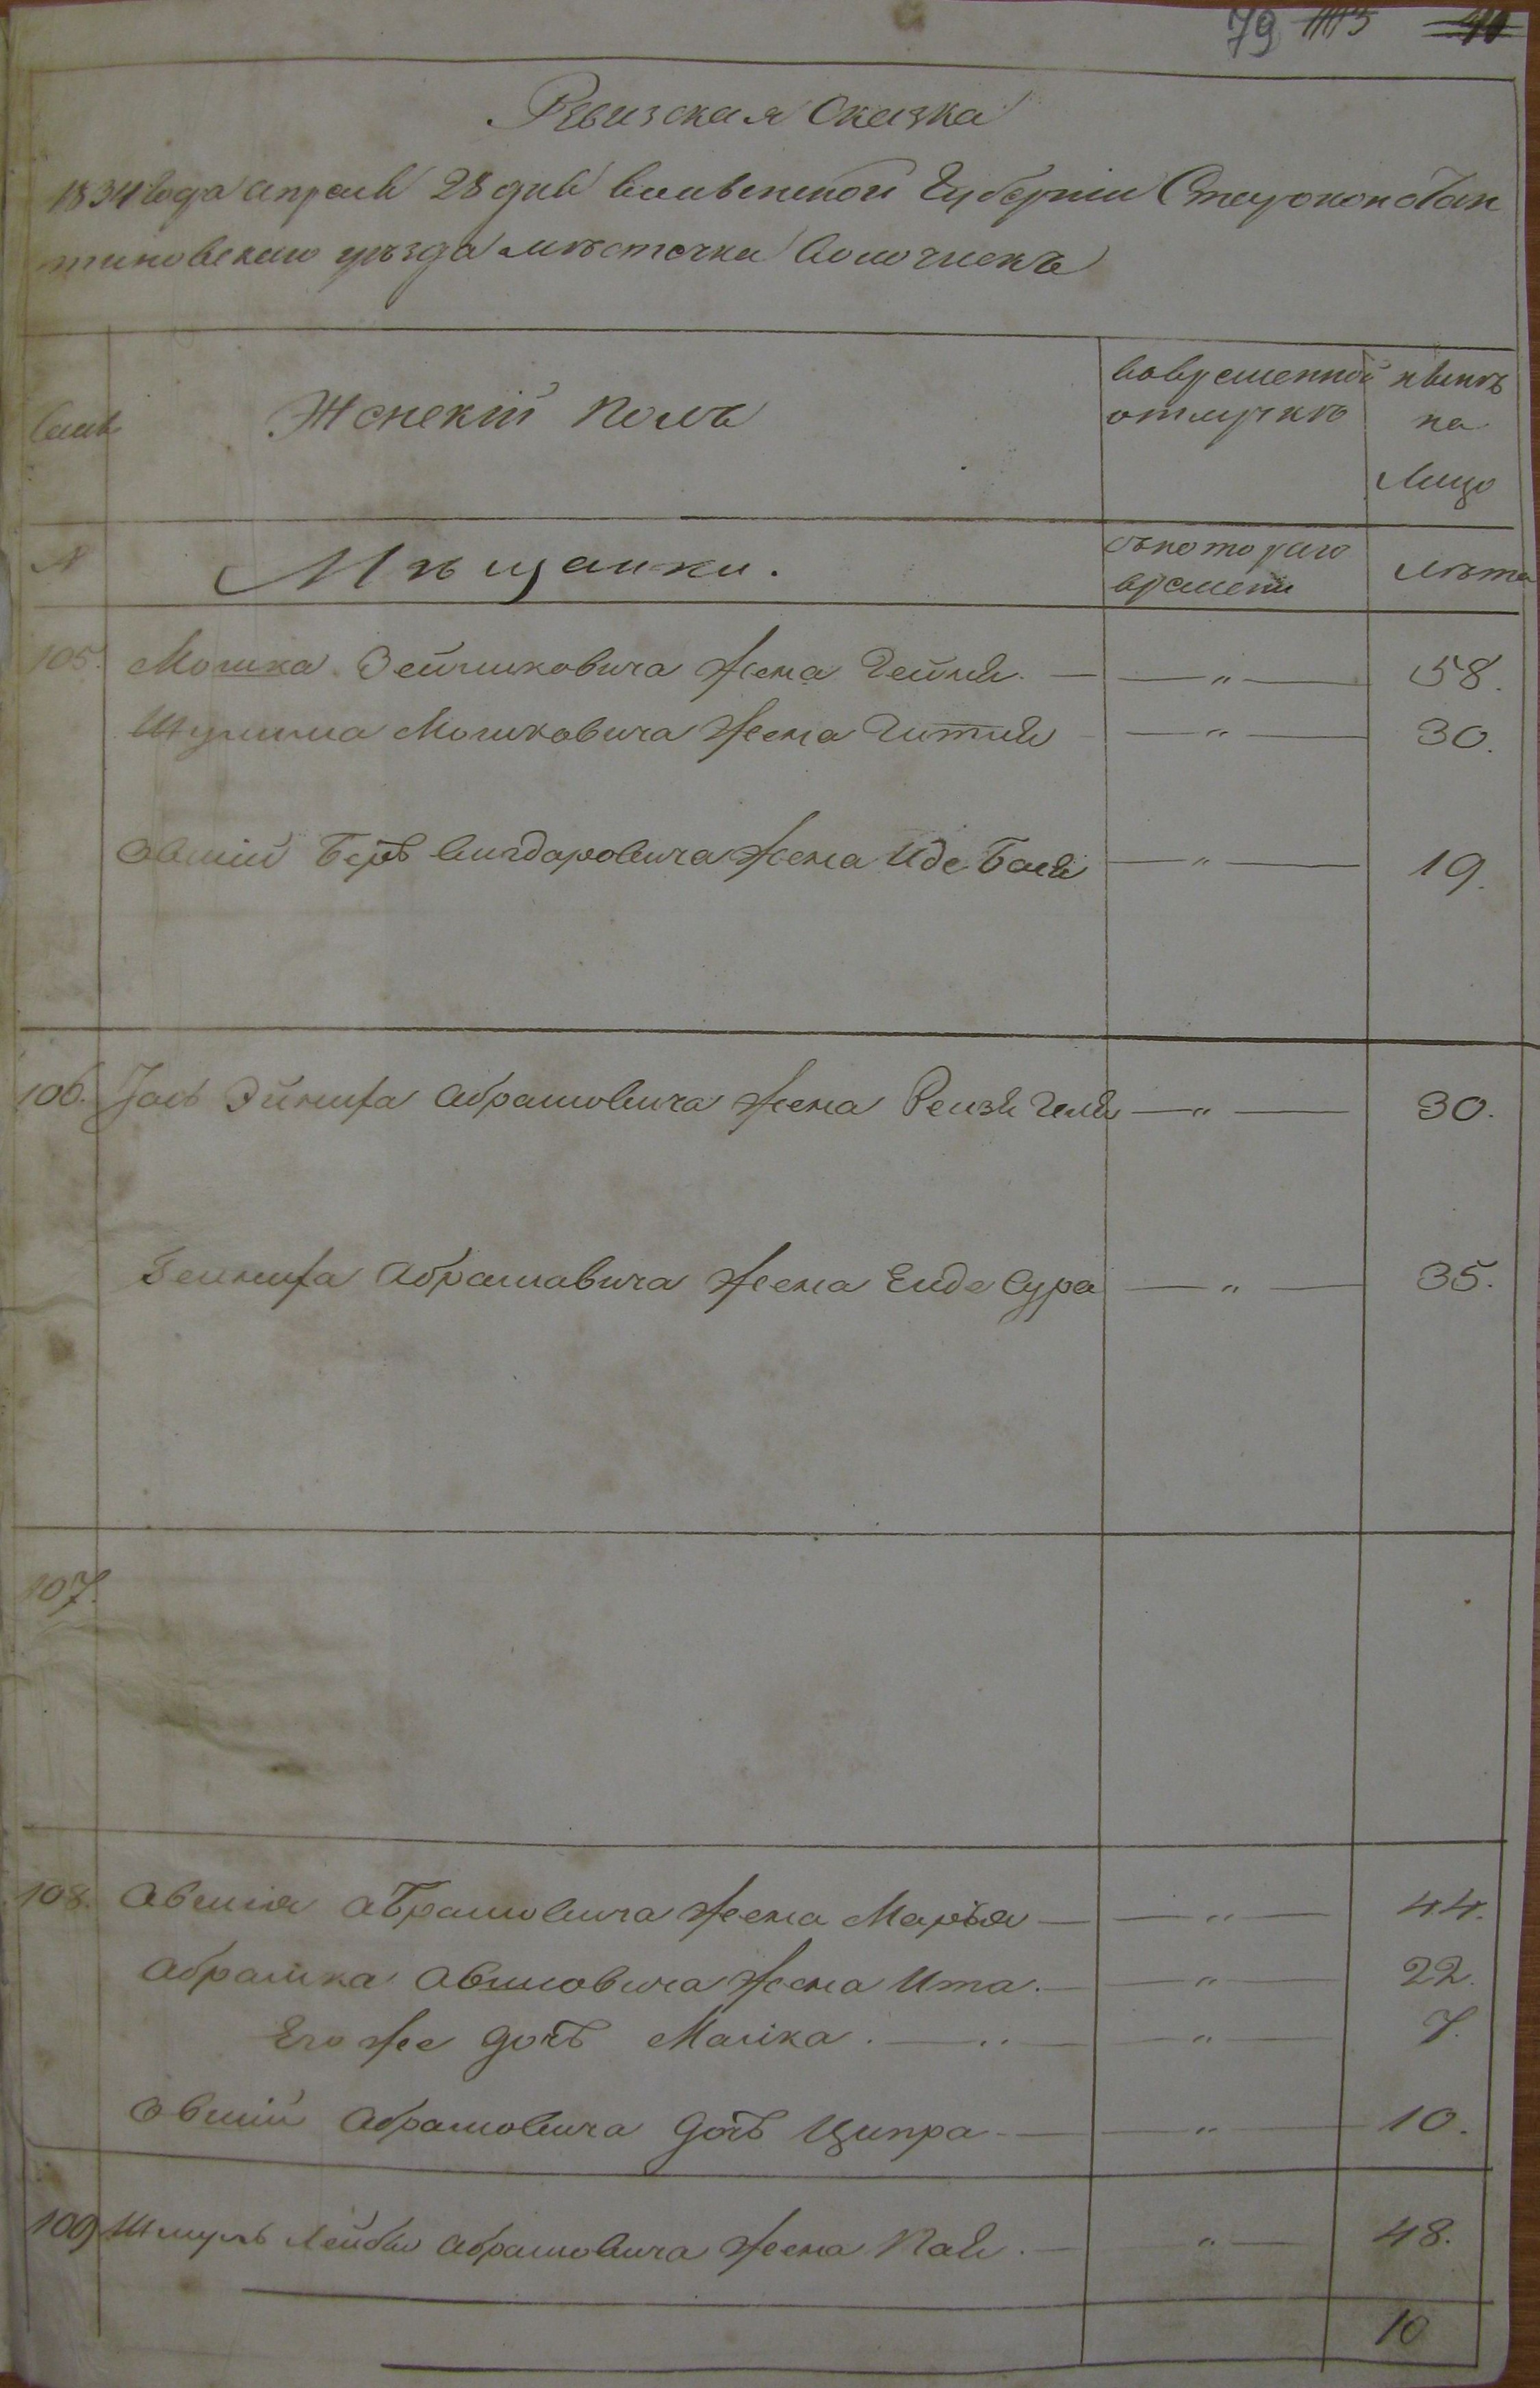 79
Ревизская Сказка
1834 года апреля 28 дня Волынской Губернiи Староконстан
тиновскаго уѣзда мѣстечка Волочискъ
Женскiй полъ
во временной
отлучкѣ
нынѣ
на
лицо
№
Мѣщанки.
съ котораго
времени
лѣта
105. Мошка Зейликовича жена Гейня — — „ — 58.
Шулима Мошковича жена Гитля — „ — 30.
Овшiй Беръ Вигдоровича жена Иде Бася — „ — 19.
106. Абрамовича жена Рейзя — „ — 30.
Абрамовича жена Енде Сура — „ — 35.
107.
108. Овшiя Абрамовича жена Марья — — „ — 44.
Абрамка Овшиовича жена Ита. — — „ — 22.
Его же дочь Малка. — „ — — „ — 7.
Овшiй Абрамовича дочь Ципра — — „ — 10.
109 Шмуль Лейбы Абрамовича жена Пая. — „ — 48.
10